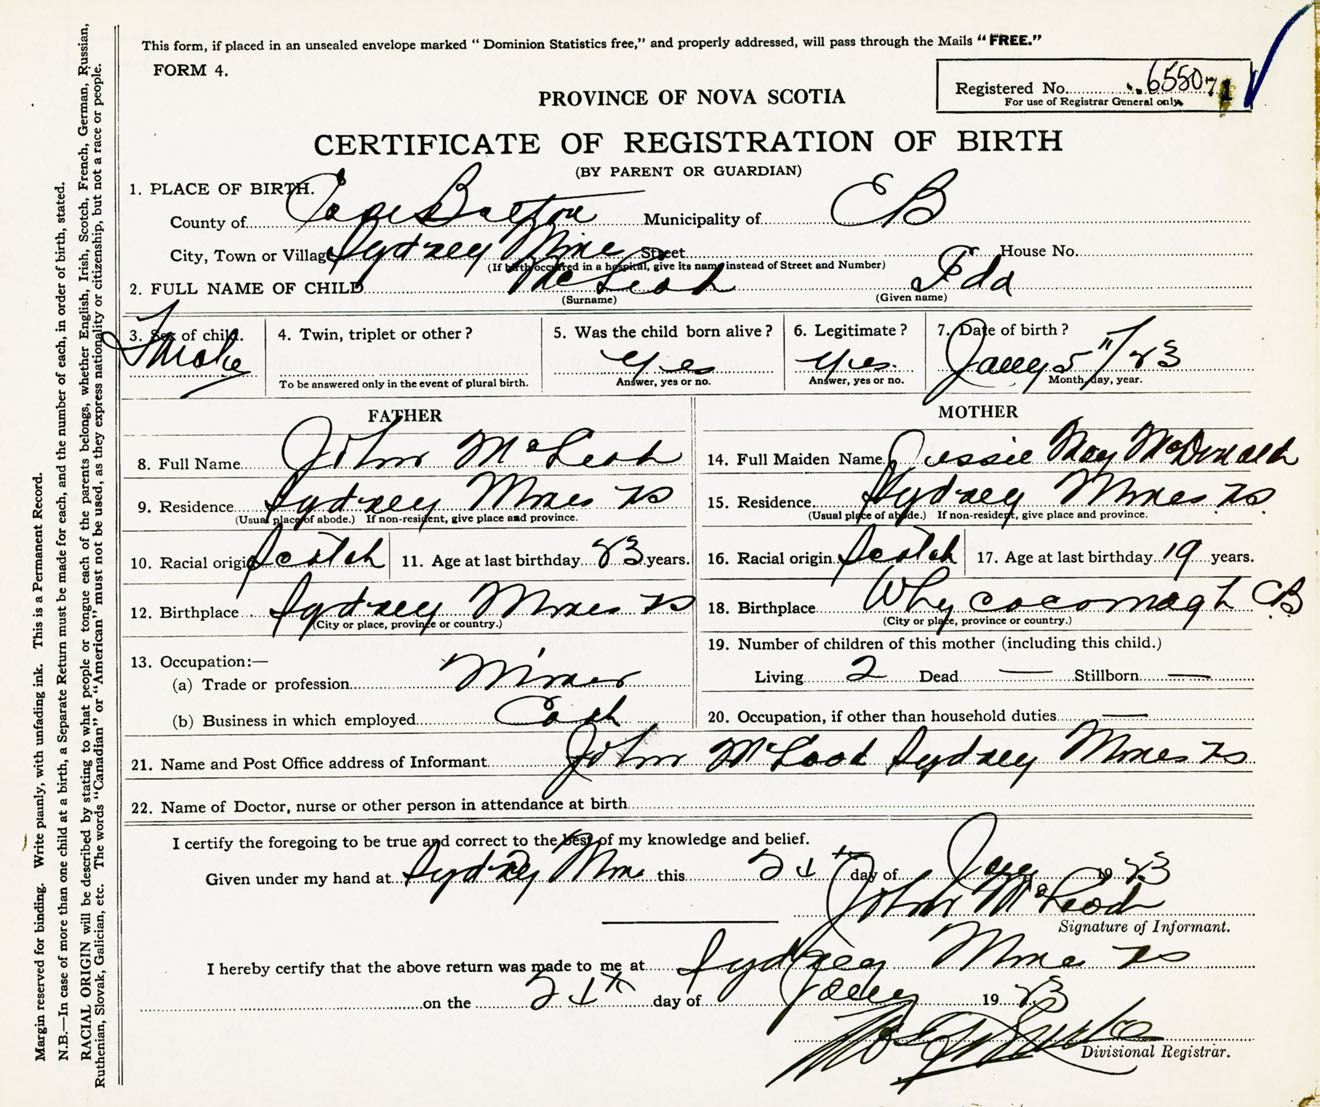 This form, if placed in an unsealed envelope marked “ Dominion Statistics free,” and properly addressed, will pass through the Mails “ FREE.”
FORM 4.
Registered No. 6550
For use of Registrar General only.
PROVINCE OF NOVA SCOTIA
CERTIFICATE OF REGISTRATION OF BIRTH
(BY PARENT OR GUARDIAN)
1. PLACE OF BIRTH.
County of Cape Breton Municipality of CB
City, Town or Village Sydney Mine Street House No.
(If birth occurred in a hospital, give its name instead of Street and Number)
2. FULL NAME OF CHILD McLeod Ida
(Surname) (Given name)
3. Sex of child. 4. Twin, triplet or other? 5. Was the child born alive? 6. Legitimate? 7. Date of birth?
Female Yes Yes. Jany 5"/23
To be answered only in the event of plural birth. Answer, yes or no. Answer, yes or no. Month, day, year.
FATHER
8. Full Name John McLeod
9. Residence Sydney Mines NS
(Usual place of abode.) If non-resident, give place and province.
10. Racial origin Scotch 11. Age at last birthday 23 years.
12. Birthplace Sydney Mines NS
(City or place, province or country.)
13. Occupation:—
(a) Trade or profession Miner
(b) Business in which employed
MOTHER
14. Full Maiden Name Jessie May McDonald
15. Residence Sydney Mines NS.
(Usual place of abode.) If non-resident, give place and province.
16. Racial origin Scotch 17. Age at last birthday 19 years.
18. Birthplace Whycocomagh CB
(City or place, province or country.)
19. Number of children of this mother (including this child.)
Living 2 Dead — Stillborn —
20. Occupation, if other than household duties —
21. Name and Post Office address of Informant John McLeod Sydney Mines NS
22. Name of Doctor, nurse or other person in attendance at birth
I certify the foregoing to be true and correct to the best of my knowledge and belief.
Given under my hand at Sydney Mine this day of Jany 1923
John McLeod
Signature of Informant.
I hereby certify that the above return was made to me at Sydney Mine NS
on the day of Jany 1923
Divisional Registrar.
Margin reserved for binding. Write plainly, with unfading ink. This is a Permanent Record.
N.B.—In case of more than one child at a birth, a Separate Return must be made for each, and the number of each, in order of birth, stated.
RACIAL ORIGIN will be described by stating to what people or tongue each of the parents belongs, whether English, Irish, Scotch, French, German, Russian,
Ruthenian, Slovak, Galician, etc. The words “Canadian” or “American” must not be used, as they express nationality or citizenship, but not a race or people.